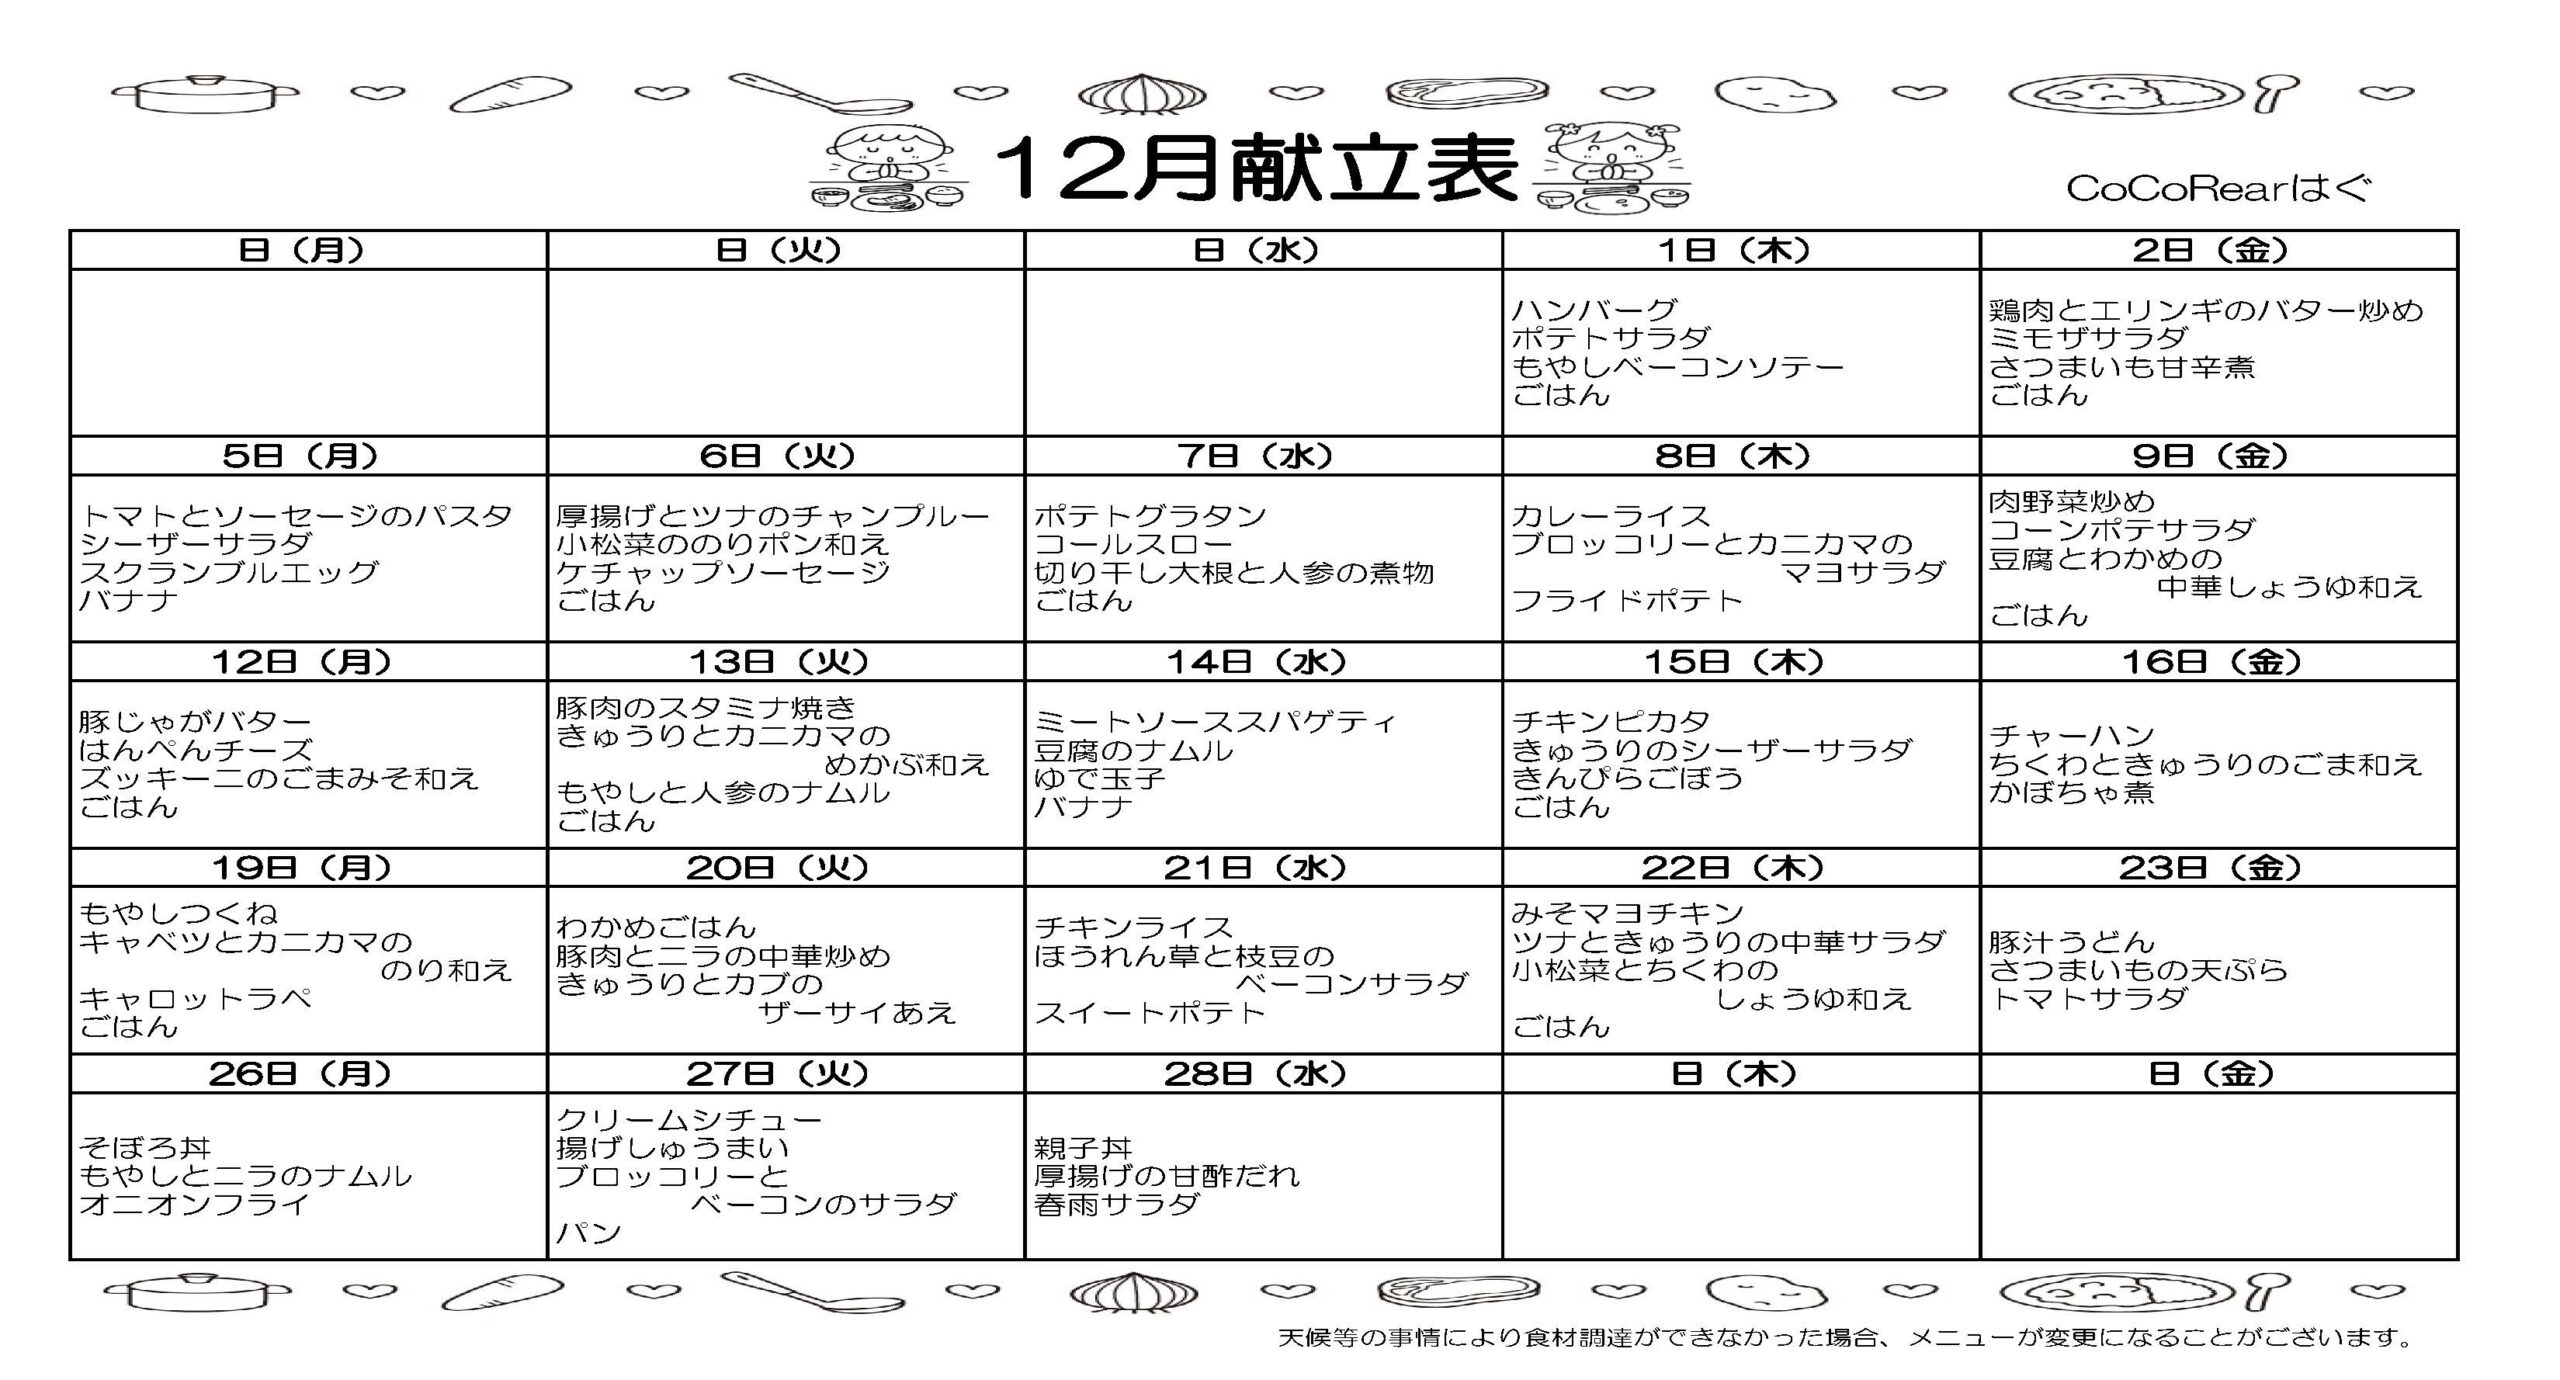 12月献立表
CoCoRearはぐ
日（月）
日（火）
日（水）
1日（木）
2日（金）
ハンバーグ
ポテトサラダ
もやしベーコンソテー
ごはん
鶏肉とエリンギのバター炒め
ミモザサラダ
さつまいも甘辛煮
ごはん
5日（月）
6日（火）
7日（水）
8日（木）
9日（金）
トマトとソーセージのパスタ
シーザーサラダ
スクランブルエッグ
バナナ
厚揚げとツナのチャンプルー
小松菜ののりポン和え
ケチャップソーセージ
ごはん
ポテトグラタン
コールスロー
切り干し大根と人参の煮物
ごはん
カレーライス
ブロッコリーとカニカマの
マヨサラダ
フライドポテト
肉野菜炒め
コーンポテサラダ
豆腐とわかめの
中華しょうゆ和え
ごはん
12日（月）
13日（火）
14日（水）
15日（木）
16日（金）
豚じゃがバター
はんぺんチーズ
ズッキーニのごまみそ和え
ごはん
豚肉のスタミナ焼き
きゅうりとカニカマの
めかぶ和え
もやしと人参のナムル
ごはん
ミートソーススパゲティ
豆腐のナムル
ゆで玉子
バナナ
チキンピカタ
きゅうりのシーザーサラダ
きんぴらごぼう
ごはん
チャーハン
ちくわときゅうりのごま和え
かぼちゃ煮
19日（月）
20日（火）
21日（水）
22日（木）
23日（金）
もやしつくね
キャベツとカニカマの
のり和え
キャロットラペ
ごはん
わかめごはん
豚肉とニラの中華炒め
きゅうりとカブの
ザーサイあえ
チキンライス
ほうれん草と枝豆の
ベーコンサラダ
スイートポテト
みそマヨチキン
ツナときゅうりの中華サラダ
小松菜とちくわの
しょうゆ和え
ごはん
豚汁うどん
さつまいもの天ぷら
トマトサラダ
26日（月）
27日（火）
28日（水）
日（木）
日（金）
そぼろ丼
もやしとニラのナムル
オニオンフライ
クリームシチュー
揚げしゅうまい
ブロッコリーと
ベーコンのサラダ
パン
親子丼
厚揚げの甘酢だれ
春雨サラダ
天候等の事情により食材調達ができなかった場合、メニューが変更になることがございます。